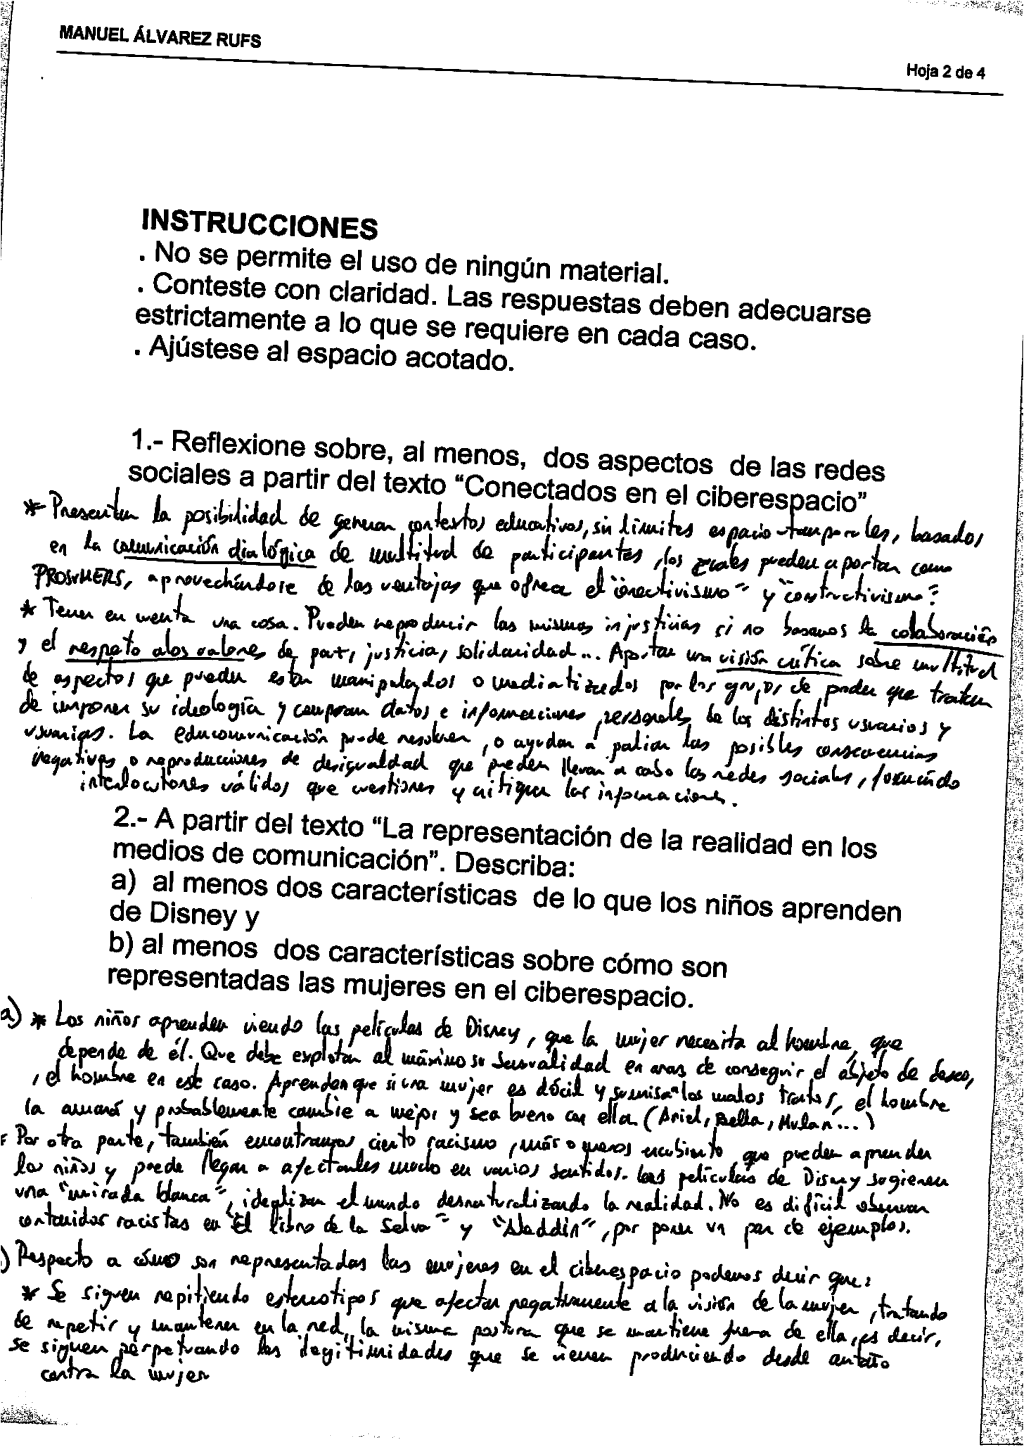 MANUEL ÁLVAREZ RUFS
Hoja 2 de 4
INSTRUCCIONES
. No se permite el uso de ningún material.
. Conteste con claridad. Las respuestas deben adecuarse
estrictamente a lo que se requiere en cada caso.
. Ajústese al espacio acotado.
1.- Reflexione sobre, al menos, dos aspectos de las redes
sociales a partir del texto "Conectados en el ciberespacio"
* Presentan la posibilidad de generar contextos educativos, sin límites espacio-temporales, basados
en la comunicación dialógica de multitud de participantes, los cuales pueden aportar como
PROSUMERS, aprovechándose de las ventajas que ofrece el "conectivismo" y "constructivismo".
* Tener en cuenta una cosa. Pueden reproducir las mismas injusticias si no basamos la colaboración
y el respeto a los valores de paz, justicia, solidaridad... Aportar una visión crítica sobre multitud
de aspectos que pueden estar manipulados o mediatizados por los grupos de poder que traten
de imponer su ideología y compran datos e informaciones personales de los distintos usuarios y
usuarias. La educomunicación puede resolver, o ayudar a paliar las posibles consecuencias
negativas o reproducciones de desigualdad que pueden llevar a cabo las redes sociales, formando
interlocutores válidos que cuestionen y critiquen las informaciones.
2.- A partir del texto "La representación de la realidad en los
medios de comunicación". Describa:
a) al menos dos características de lo que los niños aprenden
de Disney y
b) al menos dos características sobre cómo son
representadas las mujeres en el ciberespacio.
a) * Los niños aprenden viendo las películas de Disney, que la mujer necesita al hombre, que
depende de él. Que debe explotar al máximo su sexualidad en aras de conseguir el objeto de deseo,
, el hombre en este caso. Aprenden que si una mujer es dócil y sumisa a los malos tratos, el hombre
la amará y probablemente cambie a mejor y sea bueno con ella (Ariel, Bella, Mulan...)
* Por otra parte, también encontramos cierto racismo, más o menos encubierto que pueden aprender
los niños y puede llegar a afectarles mucho en varios sentidos. Las películas de Disney sugieren
una "mirada blanca", idealizan el mundo desnaturalizando la realidad. No es difícil observar
contenidos racistas en "El libro de la Selva" y "Aladdín", por poner un par de ejemplos.
) Respecto a cómo son representadas las mujeres en el ciberespacio podemos decir que:
* Se siguen repitiendo estereotipos que afectan negativamente a la visión de la mujer, tratando
de repetir y mantener en la red, la misma postura que se mantiene fuera de ella, es decir,
se siguen perpetuando las
que se vienen produciendo desde antaño
contra la mujer